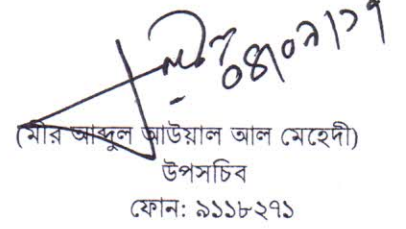 ০৪/০৯/১৭
(মীর আব্দুল আউয়াল আল মেহেদী)
উপসচিব
ফোন: ৯১১৮২৭১